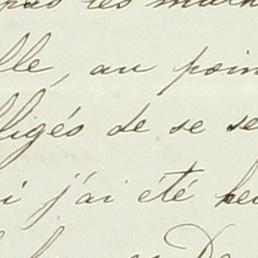 pas les mau
lle, au poin
lligés de se se
i j'ai été heu